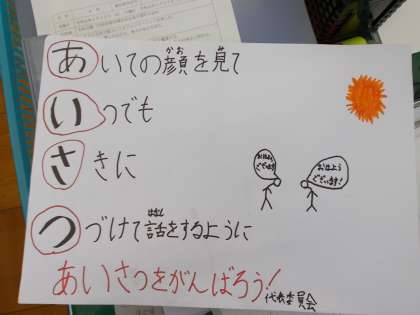 あいての顔を見て
かお
いつでも
さきに
おはよう
ございます!
おはよう
ございます!
つづけて話をするように
はなし
あいさつをがんばろう!
代表委員会